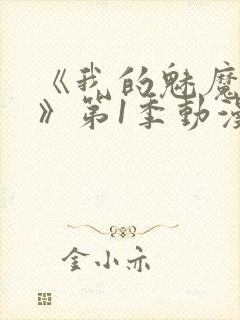 《我的魅魔
》第1季動漫
金小亦